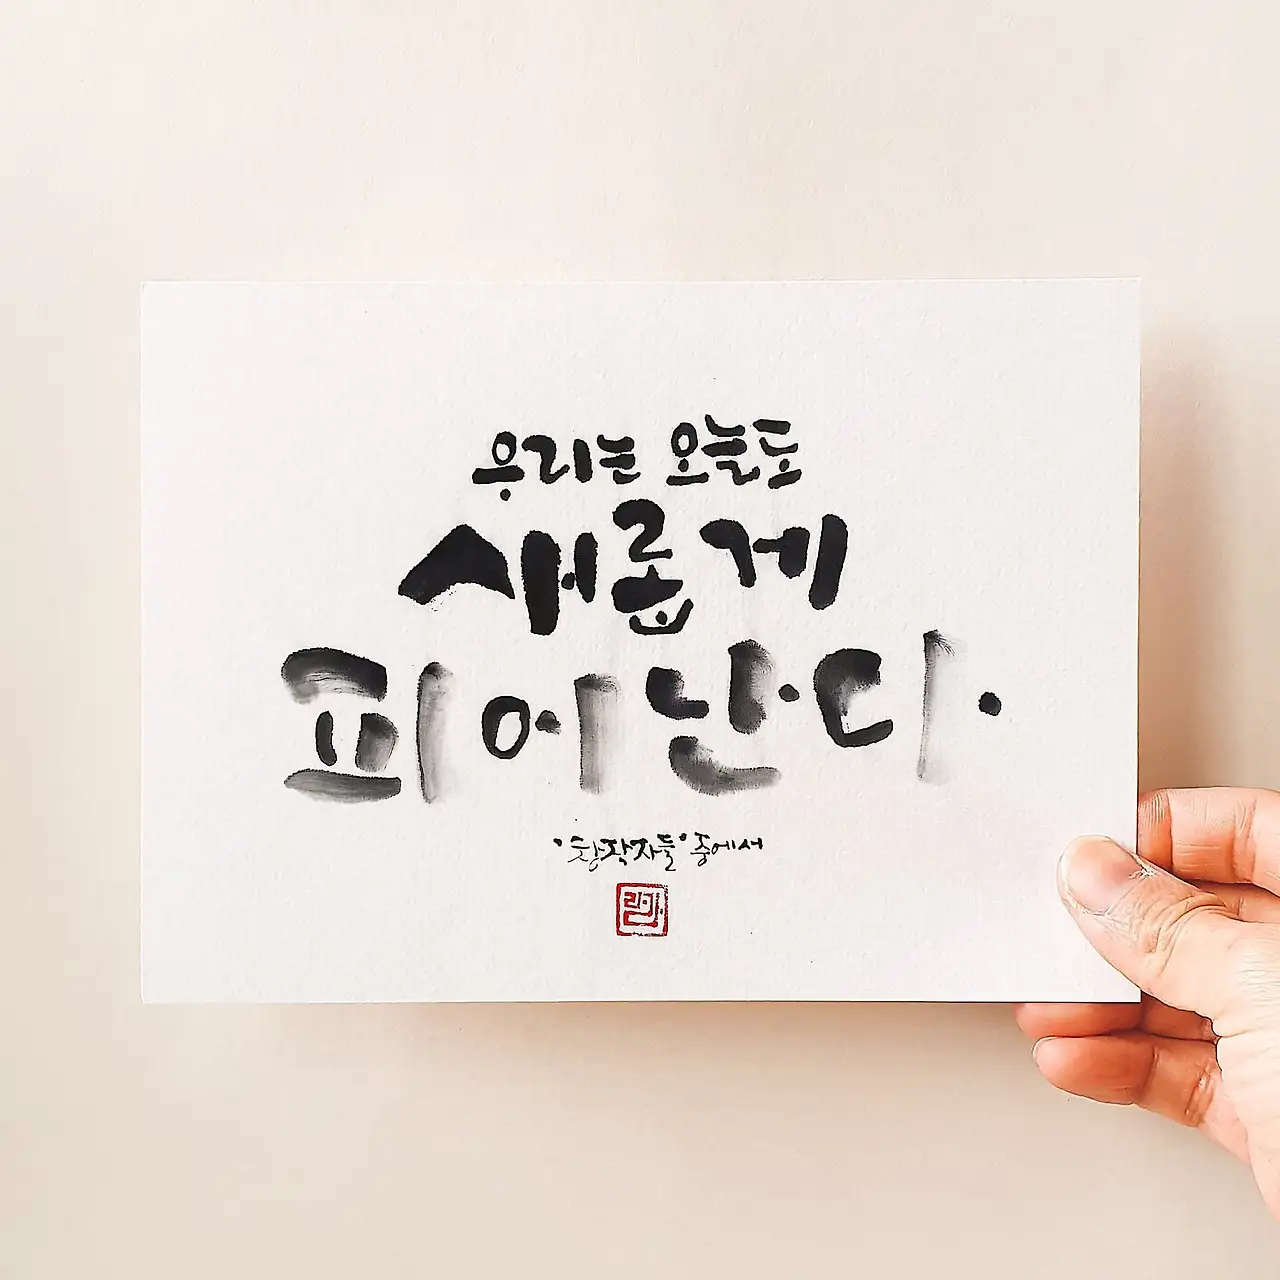 우리는 오늘도
새롭게
피어난다.
'창작자들' 중에서